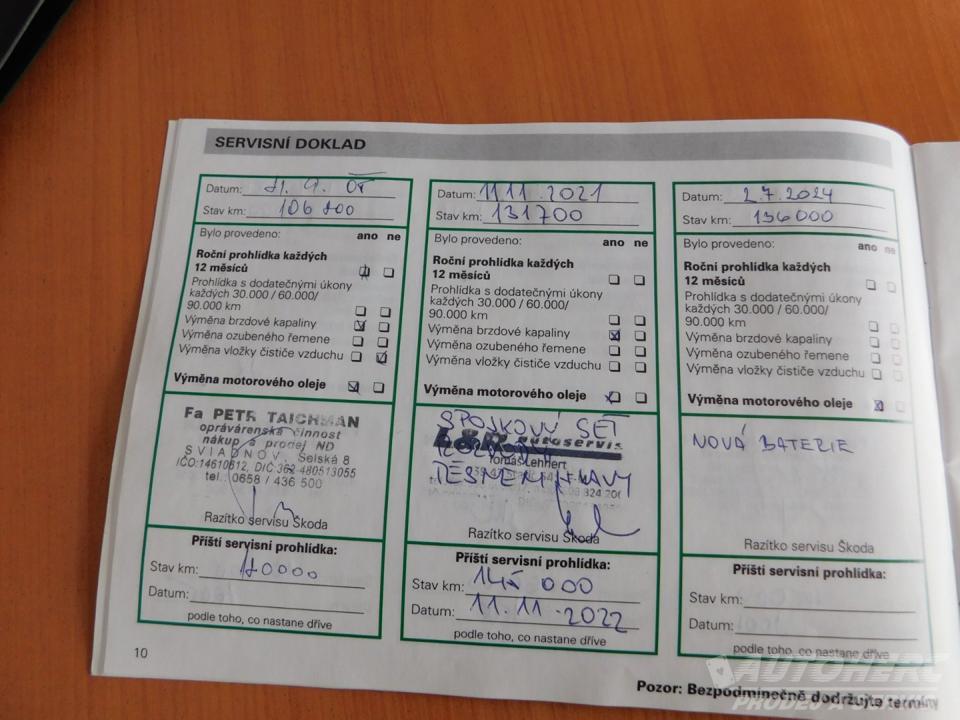 SERVISNÍ DOKLAD
Datum: 21. 9. 05
Stav km: 106 800
Bylo provedeno: ano ne
Roční prohlídka každých
12 měsíců
Prohlídka s dodatečnými úkony
každých 30.000 / 60.000/
90.000 km
Výměna brzdové kapaliny
Výměna ozubeného řemene
Výměna vložky čističe vzduchu
Výměna motorového oleje
Fa PETR TAICHMAN
opravárenská činnost
nákup a prodej ND
SVIADNOV, Selská 8
IČO:14610612, DIČ:362-480513055
tel.: 0658 / 436 500
Razítko servisu Škoda
Příští servisní prohlídka:
Stav km: 120000
Datum:
podle toho, co nastane dříve
Datum: 11.11.2021
Stav km: 131700
Bylo provedeno: ano ne
Roční prohlídka každých
12 měsíců
Prohlídka s dodatečnými úkony
každých 30.000 / 60.000/
90.000 km
Výměna brzdové kapaliny
Výměna ozubeného řemene
Výměna vložky čističe vzduchu
Výměna motorového oleje
SPOJKOVÝ SET
L&R autoservis
ROZVODY
Tomáš Lehnert
TĚSNĚNÍ HLAVY
Razítko servisu Škoda
Příští servisní prohlídka:
Stav km: 145 000
Datum: 11.11.2022
podle toho, co nastane dříve
Datum: 2.7.2024
Stav km: 136000
Bylo provedeno: ano ne
Roční prohlídka každých
12 měsíců
Prohlídka s dodatečnými úkony
každých 30.000 / 60.000/
90.000 km
Výměna brzdové kapaliny
Výměna ozubeného řemene
Výměna vložky čističe vzduchu
Výměna motorového oleje
NOVÁ BATERIE
Razítko servisu Škoda
Příští servisní prohlídka:
Stav km:
Datum:
podle toho, co nastane dříve
10
Pozor: Bezpodmínečně dodržujte termíny
AUTOHERC
PRODEJ A SERVIS